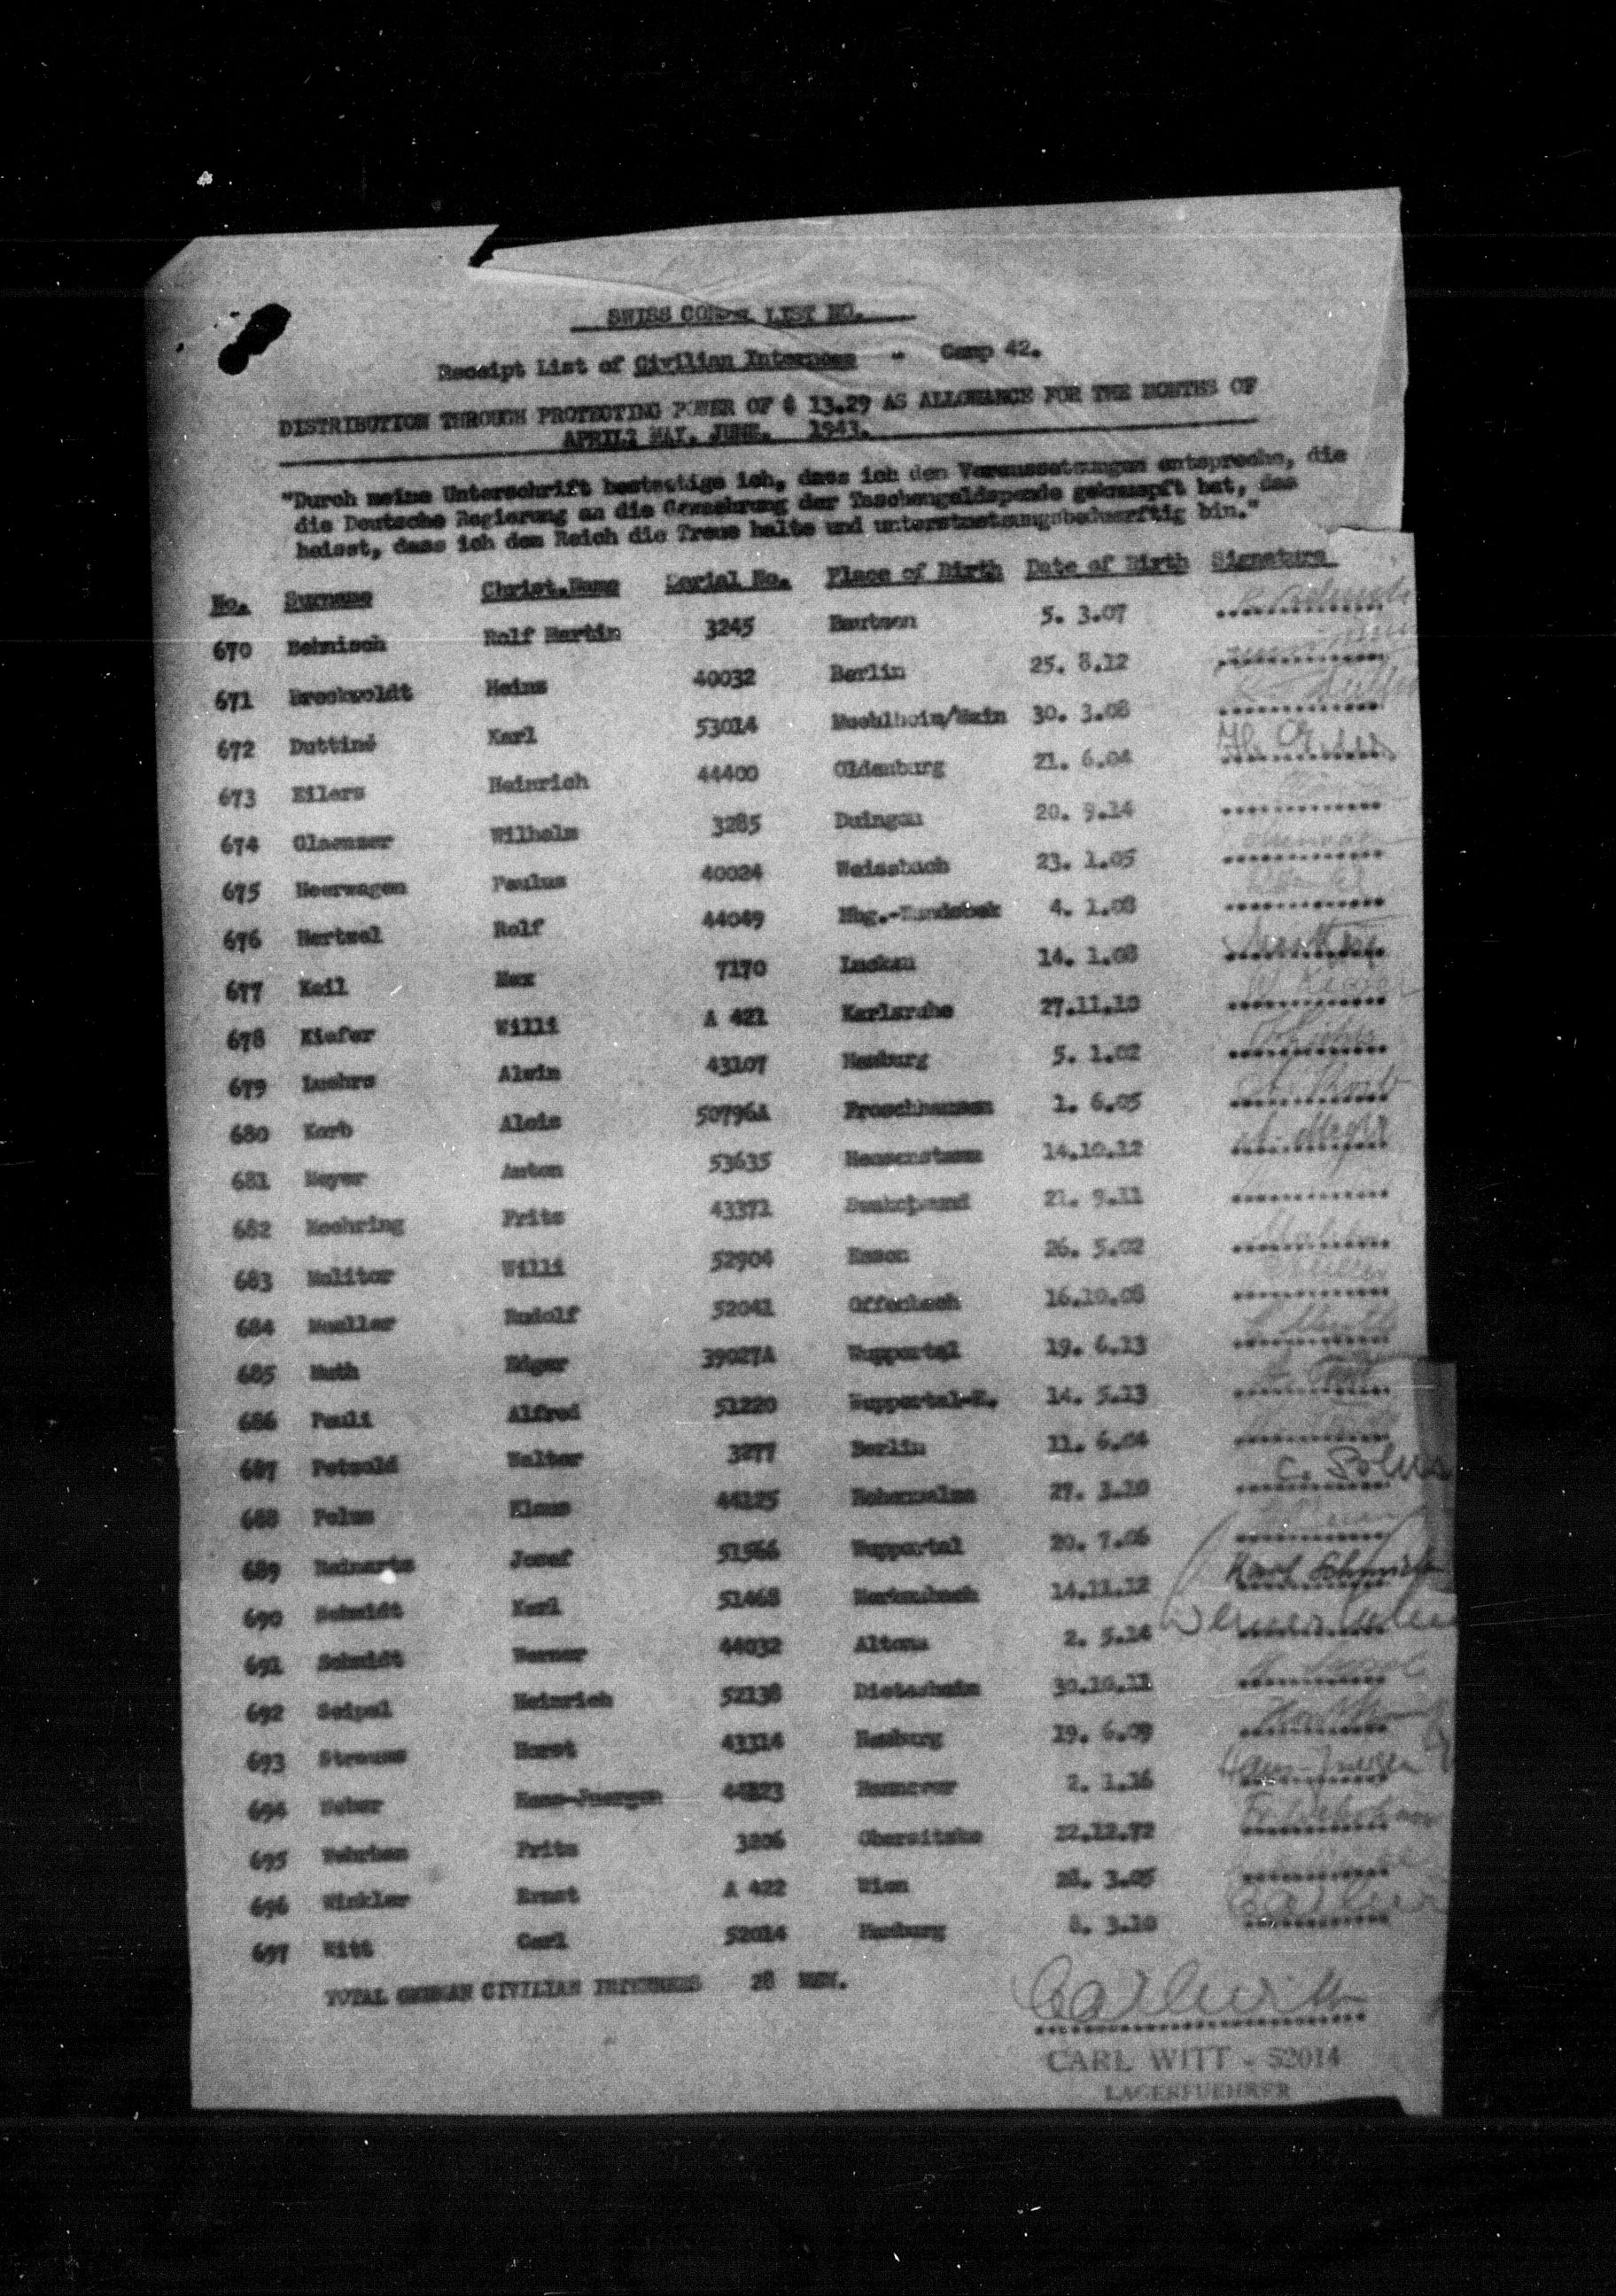 SWISS CONSUL LIST NO.
Receipt List of Civilian Internees - Camp 42.
DISTRIBUTION THROUGH PROTECTING POWER OF $ 13.29 AS ALLOWANCE FOR THE MONTHS OF
APRIL, MAY, JUNE, 1943.
"Durch meine Unterschrift bestaetige ich, dass ich den Voraussetzungen entspreche, die
die Deutsche Regierung an die Gewaehrung der Taschengeldspende geknuepft hat, das
heisst, dass ich dem Reich die Treue halte und unterstuetzungsbeduerftig bin."
No. Surname Christ.Name Serial No. Place of Birth Date of Birth Signature
670 Behnisch Rolf Martin 3245 Bautzen 5. 3.07
671 Brockwoldt Heinz 40032 Berlin 25. 8.12
672 Duttiné Karl 53014 Muehlheim/Main 30. 3.08
673 Eilers Heinrich 44400 Oldenburg 21. 6.04
674 Glaenzer Wilhelm 3285 Duingen 20. 9.14
675 Heerwagen Paulus 40024 Weissbach 23. 1.05
676 Hertzel Rolf 44049 Hbg.-Wandsbek 4. 1.08
677 Keil Max 7170 Luckau 14. 1.08
678 Kiefer Willi A 421 Karlsruhe 27.11.10 W Kiefer
679 Luehrs Alwin 43107 Hamburg 5. 1.02
680 Korb Alois 50796A Froschhausen 1. 6.05 Korb
681 Meyer Anton 53635 Hausenstamm 14.10.12 A. Meyer
682 Moehring Fritz 43371 21. 9.11
683 Molitor Willi 52904 Essen 26. 5.02
684 Mueller Rudolf 52041 Offenbach 16.10.08
685 Muth Edgar 39027A Wuppertal 19. 6.13 E Muth
686 Pauli Alfred 51220 Wuppertal-E. 14. 5.13
687 Petzold Walter 3277 Berlin 11. 6.04
688 Polus Klaus 44125 Hohensalza 27. 3.10 C. Polus
689 Reinartz Josef 51566 Wuppertal 20. 7.06
690 Schmidt Karl 51468 14.11.12 Karl Schmidt
691 Schmidt Werner 44032 Altona 2. 5.14 Werner
692 Seipel Heinrich 52138 Dietesheim 30.10.11
693 Strauss Horst 43314 Hamburg 19. 6.09
694 Weber Hans-Juergen 44823 Hannover 2. 1.16 Hans-Juergen
695 Wehrhan Fritz 3206 Obersitzko 22.12.72
696 Winkler Ernst A 422 Wien 28. 3.05
697 Witt Carl 52014 Hamburg 8. 3.10 Carl Witt
TOTAL GERMAN CIVILIAN INTERNEES 28 MEN.
Carl Witt
CARL WITT - 52014
LAGERFUEHRER